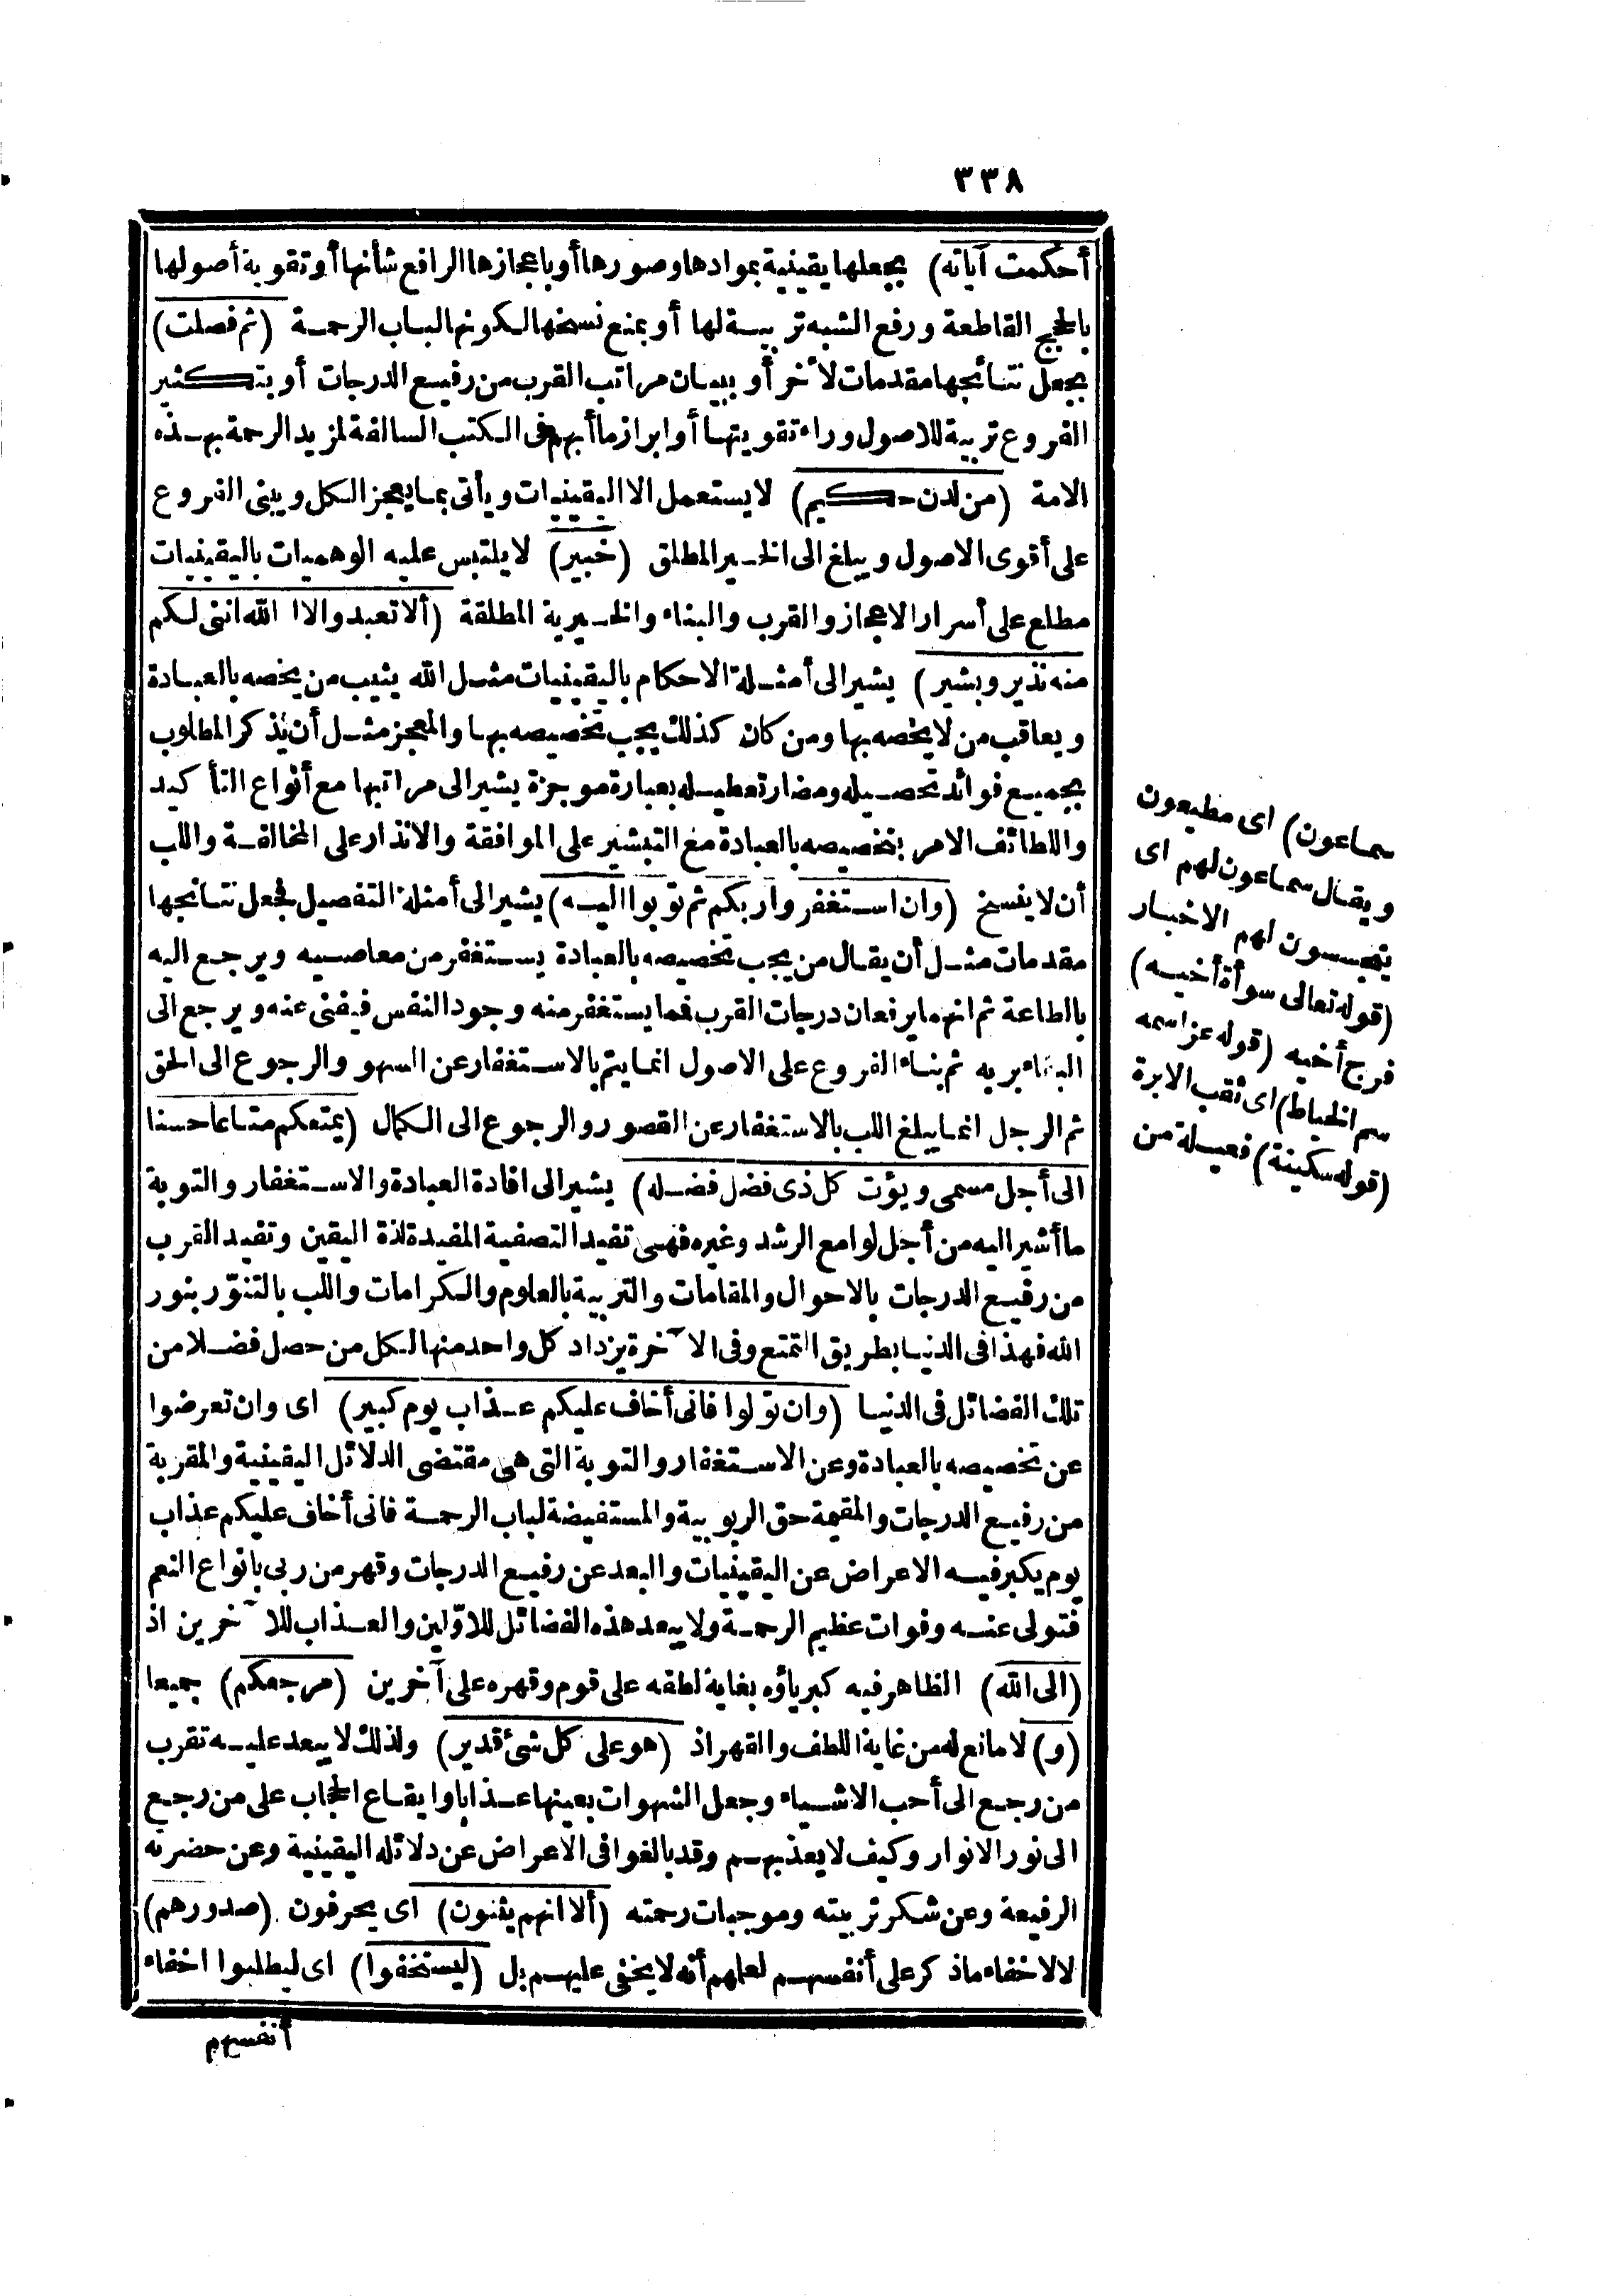 ٣٣٨
أحكمت آياته) بجعلها يقينية بموادها وصورها أو باعجازها الرافع شأنها أو تقوية أصولها
بالحجج القاطعة ورفع الشبه تربيسة لها أو بمنع نسخها لكونها لباب الرحمة (ثم فصلت)
بجعل نتائجها مقدمات لأخر أو ببيان مراتب القرب من رفيع الدرجات أو بتكثير
الفروع تربية للاصول وراء تقويتها أو ابراز ما أبهم فى الكتب السالفة لمزيد الرحمة بهذه
الامة (من لدن حكيم) لا يستعمل الا اليقينيات ويأتى بما يعجز الكل ويبنى الفروع
على أقوى الاصول ويبلغ الى الخير المطلق (خبير) لا يلتبس عليه الوهميات باليقينيات
مطلع على أسرار الاعجاز والقرب والبناء والخيرية المطلقة (ألا تعبدوا الا الله اننى لكم
منه نذير وبشير) يشير الى أمثلة الاحكام باليقينيات مثل الله يثيب من يخصه بالعبادة
ويعاقب من لا يخصه بها ومن كان كذلك يجب تخصيصه بها والمعجز مثل أن يذكر المطلوب
بجميع فوائد تحصيله ومضار تعطيله بعبارة موجزة يشير الى مراتبها مع أنواع التأكيد
واللطائف الامر بتخصيصه بالعبادة مع التبشير على الموافقة والانذار على المخالفة واللب
أن لا يفسخ (وان استغفروا ربكم ثم توبوا اليه) يشير الى أمثلة التفصيل فجعل نتائجها
مقدمات مثل أن يقال من يجب تخصيصه بالعبادة يستغفر من معاصيه ويرجع اليه
بالطاعة ثم انهما يرفعان درجات القرب فما يستغفر منه وجود النفس فيفنى عنه ويرجع الى
البقاء بربه ثم بناء الفروع على الاصول انما يتم بالاستغفار عن السهو والرجوع الى الحق
ثم الرجل انما يبلغ اللب بالاستغفار عن القصور والرجوع الى الكمال (يمتعكم متاعا حسنا
الى أجل مسمى ويؤت كل ذى فضل فضله) يشير الى افادة العبادة والاستغفار والتوبة
ما أشير اليه من أجل لوامع الرشد وغيره فهى تفيد التصفية المفيدة لذة اليقين وتفيد القرب
من رفيع الدرجات بالاحوال والمقامات والتربية بالعلوم والكرامات واللب بالتنوّر بنور
الله فهذا فى الدنيا بطريق التمتع وفى الآخرة يزداد كل واحد منها لكل من حصل فضلا من
تلك الفضائل فى الدنيا (وان تولوا فانى أخاف عليكم عذاب يوم كبير) اى وان تعرضوا
عن تخصيصه بالعبادة وعن الاستغفار والتوبة التى هى مقتضى الدلائل اليقينية والمقربة
من رفيع الدرجات والمقيمة حق الربوبية والمستفيضة لباب الرحمة فانى أخاف عليكم عذاب
يوم يكبر فيه الاعراض عن اليقينيات والبعد عن رفيع الدرجات وقهر من ربى بانواع النعم
فتولى عنه وفوات عظيم الرحمة ولا يبعد هذه الفضائل للاوّلين والعذاب للآخرين اذ
(الى الله) الظاهر فيه كبرياؤه بغاية لطفه على قوم وقهره على آخرين (مرجعكم) جميعا
(و) لا مانع له من غاية اللطف والقهر اذ (هو على كل شئ قدير) ولذلك لا يبعد عليه تقرب
من رجع الى أحب الاشياء وجعل الشهوات بعينها عذابا وايقاع الحجاب على من رجع
الى نور الانوار وكيف لا يعذبهم وقد بالغوا فى الاعراض عن دلائله اليقينية وعن حضرته
الرفيعة وعن شكر تربيته وموجبات رحمته (ألا انهم يثنون) اى يحرفون (صدورهم)
لا لاخفاء ما ذكر على أنفسهم لعلمهم أنه لا يخفى عليهم بل (ليستخفوا) اى ليطلبوا اخفاء
أنفسهم
سماعون) اى مطيعون
ويقال سماعون لهم اى
يتجسسون لهم الاخبار
(قوله تعالى سوأة أخيه)
فرج أخيه (قوله عز اسمه
سم الخياط) اى ثقب الابرة
(قوله سكينة) فعيلة من